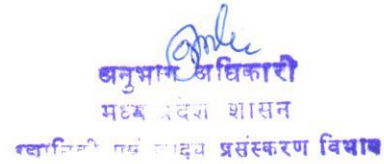 अनुभाग अधिकारी
मध्य प्रदेश शासन
उद्यानिकी एवं खाद्य प्रसंस्करण विभाग